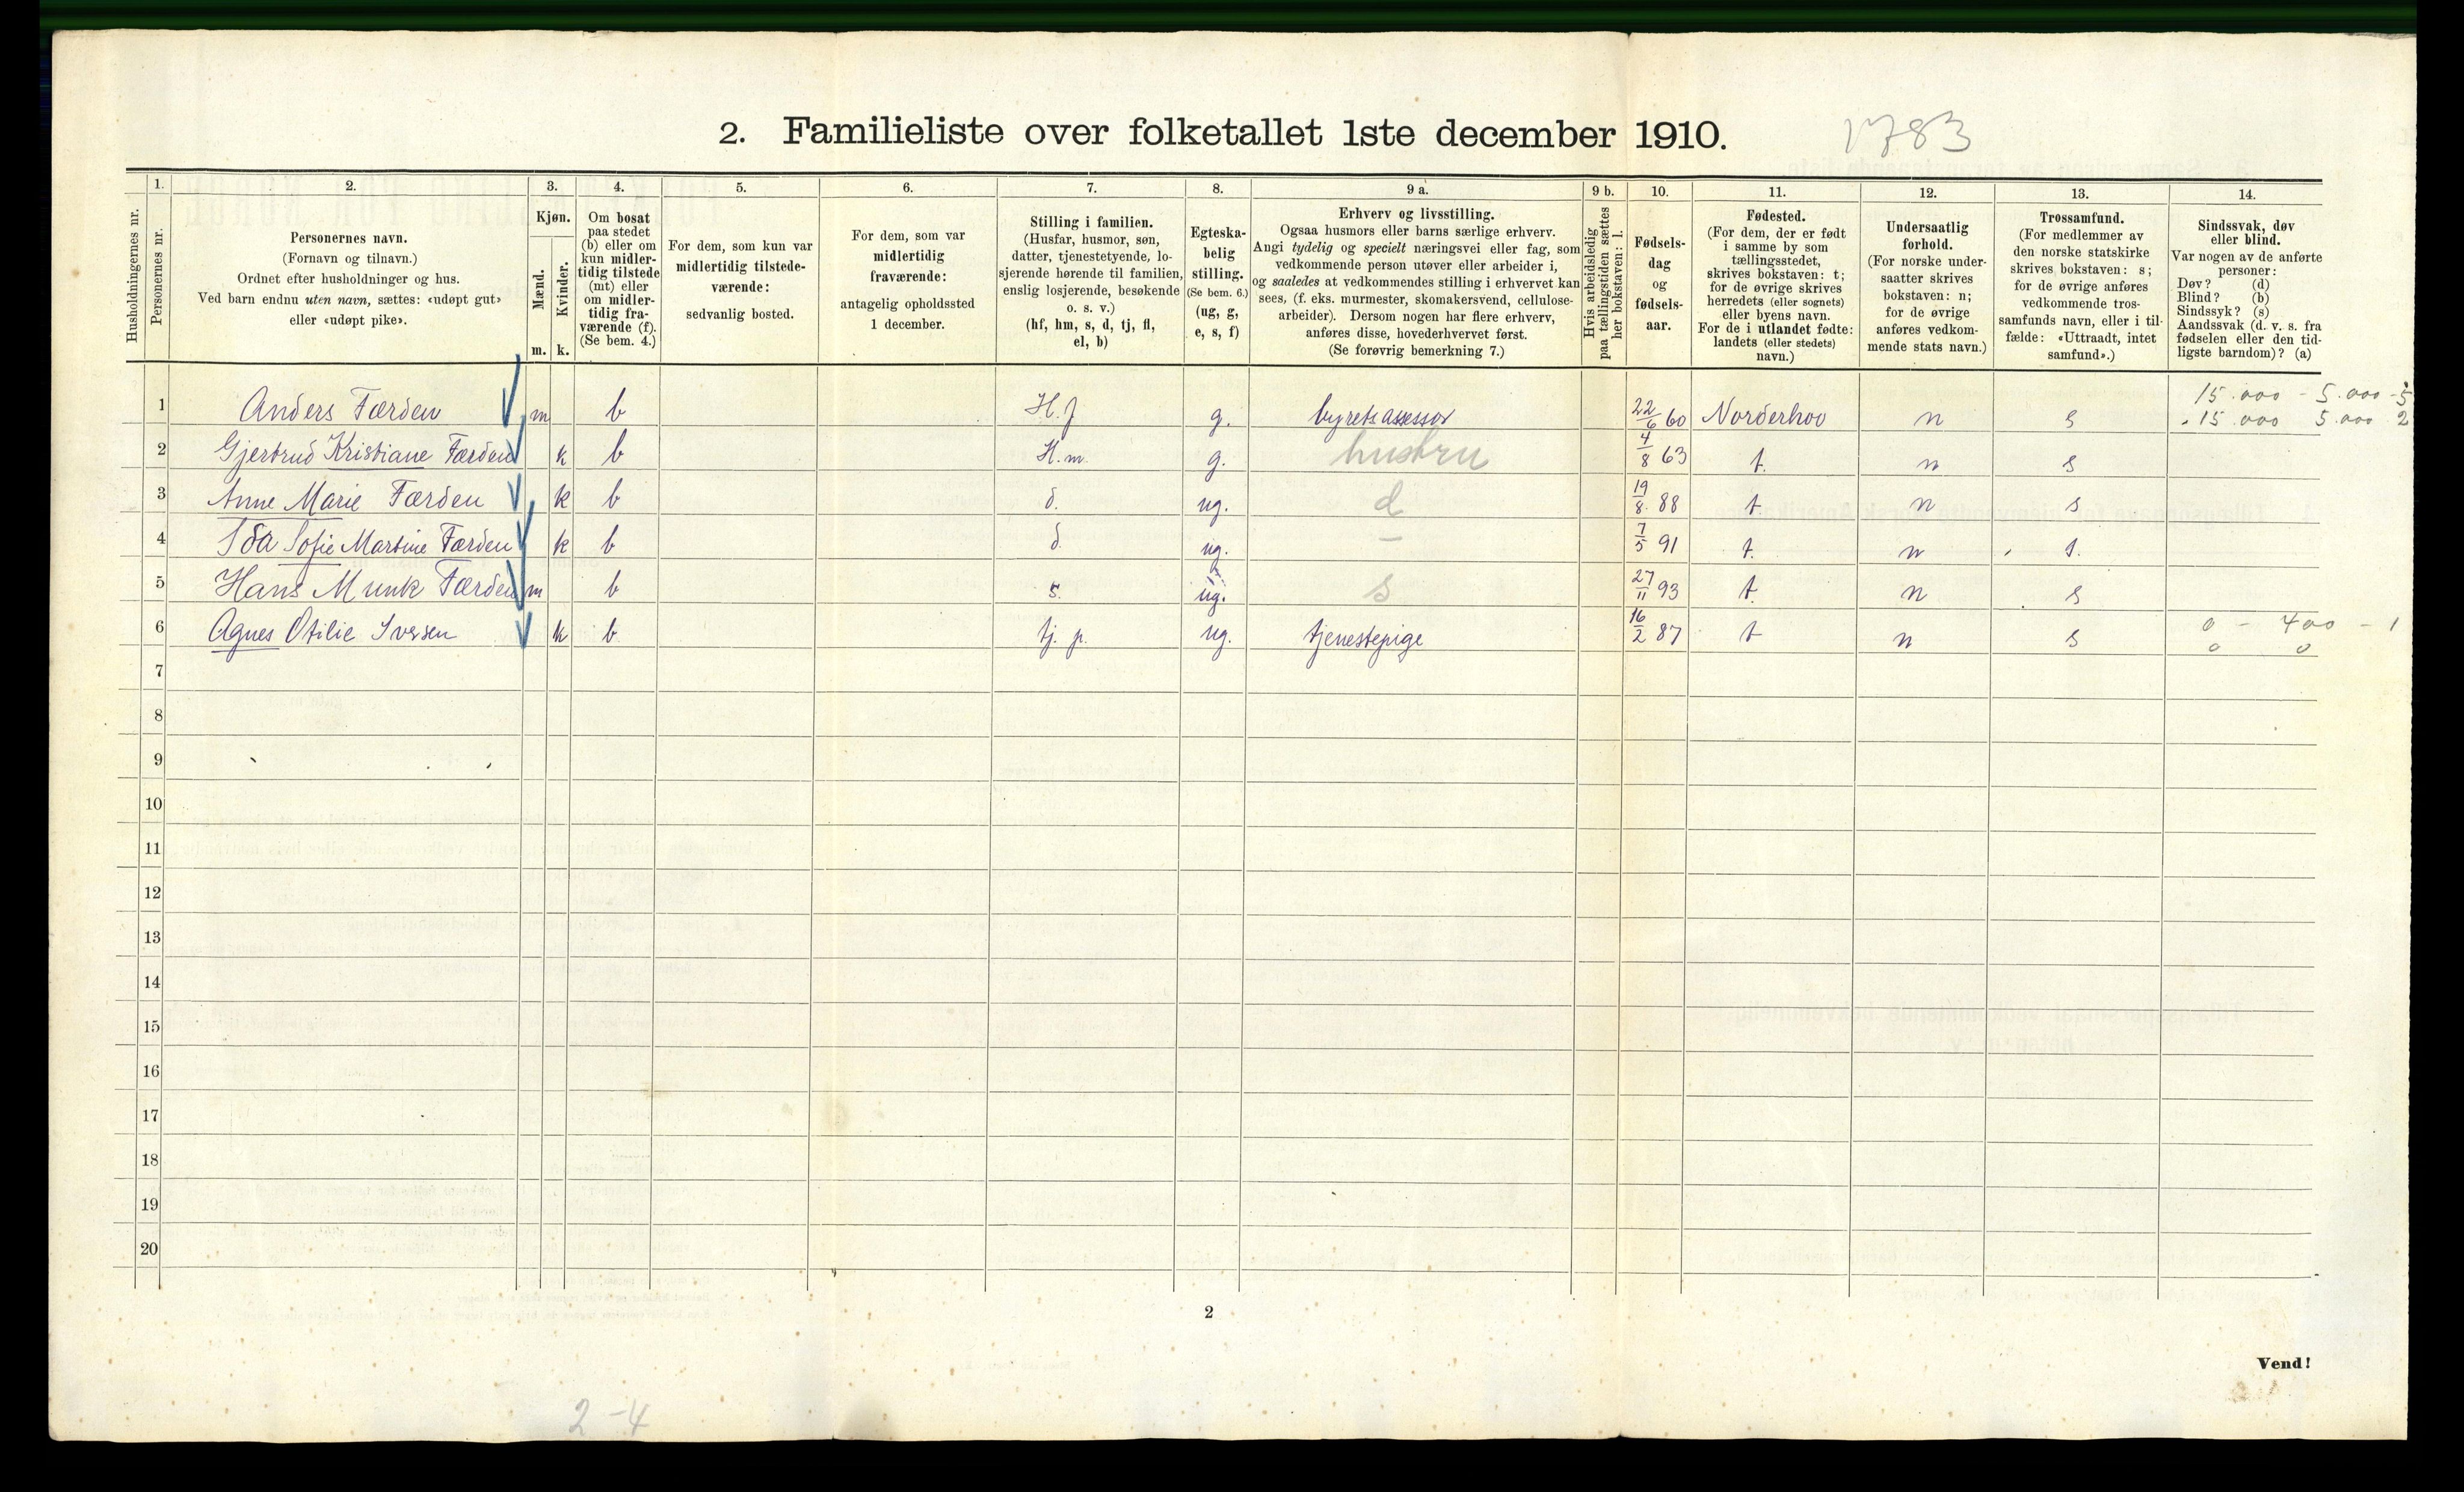 2. Familieliste over folketallet 1ste december 1910. 1783
Husholdningernes nr.
1.
Personernes nr.
2.
Personernes navn.
(Fornavn og tilnavn.)
Ordnet efter husholdninger og hus.
Ved barn endnu uten navn, sættes: «udøpt gut»
eller «udøpt pike».
3.
Kjøn.
Mænd.
m.
Kvinder.
k.
4.
Om bosat
paa stedet
(b) eller om
kun midler-
tidig tilstede
(mt) eller
om midler-
tidig fra-
værende (f).
(Se bem. 4.)
5.
For dem, som kun var
midlertidig tilstede-
værende:
sedvanlig bosted.
6.
For dem, som var
midlertidig
fraværende:
antagelig opholdssted
1 december.
7.
Stilling i familien.
(Husfar, husmor, søn,
datter, tjenestetyende, lo-
sjerende hørende til familien,
enslig losjerende, besøkende
o. s. v.)
(hf, hm, s, d, tj, fl,
el, b)
8.
Egteska-
belig
stilling.
(Se bem. 6.)
(ug, g,
e, s, f)
9 a.
Erhverv og livsstilling.
Ogsaa husmors eller barns særlige erhverv.
Angi tydelig og specielt næringsvei eller fag, som
vedkommende person utøver eller arbeider i,
og saaledes at vedkommendes stilling i erhvervet kan
sees, (f. eks. murmester, skomakersvend, cellulose-
arbeider). Dersom nogen har flere erhverv,
anføres disse, hovederhvervet først.
(Se forøvrig bemerkning 7.)
9 b.
Hvis arbeidsledig
paa tællingstiden sættes
her bokstaven: l.
10.
Fødsels-
dag
og
fødsels-
aar.
11.
Fødested.
(For dem, der er født
i samme by som
tællingsstedet,
skrives bokstaven: t;
for de øvrige skrives
herredets (eller sognets)
eller byens navn.
For de i utlandet fødte:
landets (eller stedets)
navn.)
12.
Undersaatlig
forhold.
(For norske under-
saatter skrives
bokstaven: n;
for de øvrige
anføres vedkom-
mende stats navn.)
13.
Trossamfund.
(For medlemmer av
den norske statskirke
skrives bokstaven: s;
for de øvrige anføres
vedkommende tros-
samfunds navn, eller i til-
fælde: «Uttraadt, intet
samfund».)
14.
Sindssvak, døv
eller blind.
Var nogen av de anførte
personer:
Døv? (d)
Blind? (b)
Sindssyk? (s)
Aandssvak (d. v. s. fra
fødselen eller den tid-
ligste barndom)? (a)
15.000 - 5.000 - 5
1 Anders Færden m b H.f g. byretsassessor 22/6 60 Norderhov n s 15.000 5.000 2
2 Gjertrud Kristiane Færden k b H.m. g. hustru 4/8 63 t. n s
3 Anne Marie Færden k b d. ug. d 19/8 88 t n s
4 Ida Sofie Martine Færden k b d. ug. - 7/5 91 t. n s.
5 Hans Munk Færden m b s. ug. s 27/11 93 t. n s
6 Agnes Otilie Iversen k b tj. p. ug. tjenestepige 16/2 87 t n s 0 - 400 - 1
0 0
7
8
9
10
11
12
13
14
15
16
17
18
19
20
2
Vend!
2-4